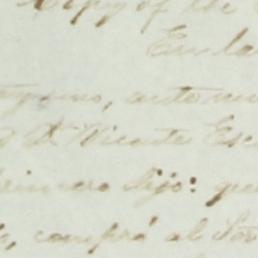 Copy of the
En la
ante
D. Vicente Esc
primero dijo: que
compró al Sor